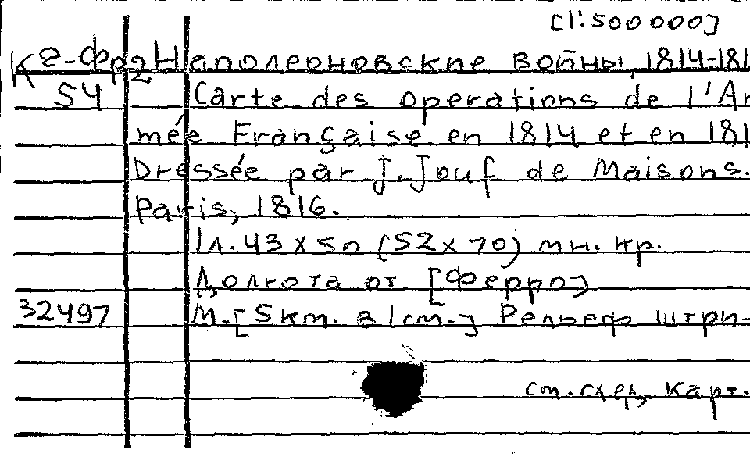 [1:500 000]
К 2-Фрa Наполеоновские войны, 1814-181
54 Carte des operations de l'Ar
mée Française en 1814 et en 181
Dressée par J. Jouf de Maisons.
Paris, 1816.
1л. 43 x 50 (52 x 70) мн. кр.
Долгота от [Ферро]
32497 М. [5 km. в 1 cm.] Рельеф штри-
см. след. карт.